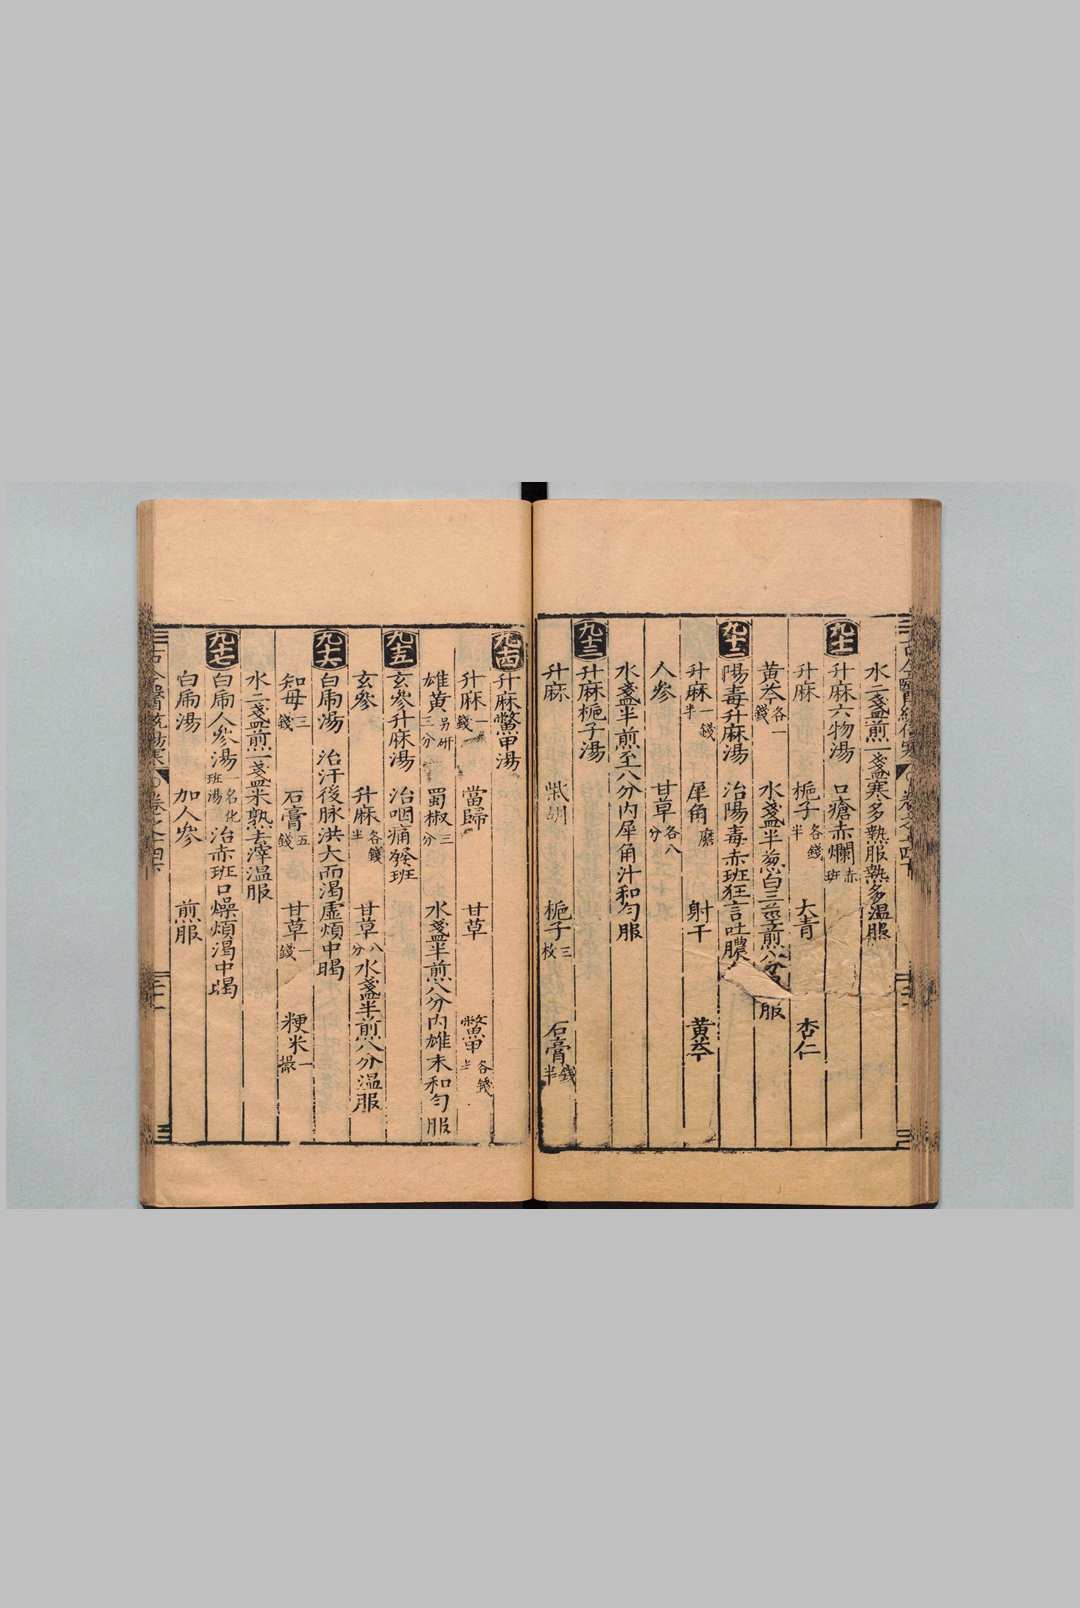 水二盞煎一盞寒多熱服熱多温服
九十一
升麻六物湯 口瘡赤爛赤班
升麻 梔子各錢半 大青 杏仁
黄芩各一錢 水盞半葱白三莖煎八分 服
九十二
陽毒升麻湯 治陽毒赤班狂言吐膿
升麻一錢半 犀角磨 射干 黄芩
人參 甘草各八分
水盞半煎至八分内犀角汁和匀服
九十三
升麻梔子湯
升麻 柴胡 梔子三枚 石膏錢半
九十四
升麻鱉甲湯
升麻一錢 當歸 甘草 鱉甲各錢半
雄黄另研三分 蜀椒三分 水盞半煎八分内雄末和匀服
九十五
玄參升麻湯 治咽痛發班
玄參 升麻各錢半 甘草八分 水盞半煎八分温服
九十六
白虎湯 治汗後脉洪大而渴虛煩中暍
知母三錢 石膏五錢 甘草一錢 粳米一撮
水二盞煎一盞米熟去滓温服
九十七
白虎人參湯一名化班湯 治赤班口燥煩渴中暍
白虎湯 加人參 煎服